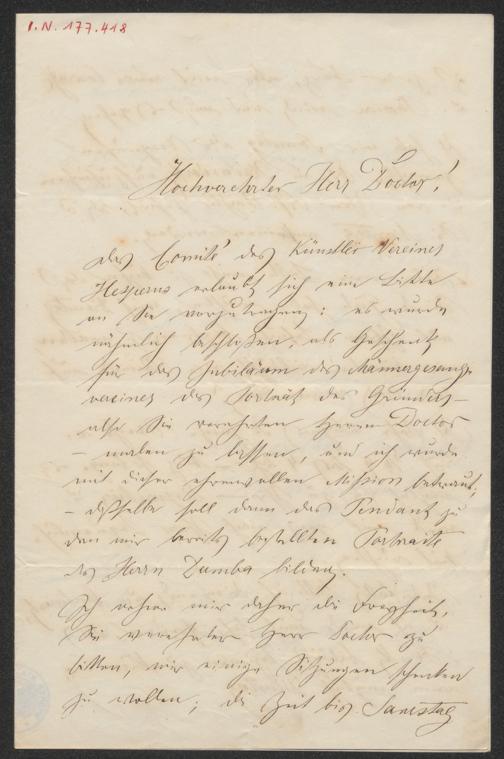 I.N. 177.418
Hochverehrter Herr Doctor!
das Comité des Künstler Vereines
Hesperus erlaubt sich eine Bitte
an Sie vorzutragen: es wurde
nähmlich beschloßen, als Geschenk
für das Jubiläum des Männergesang-
vereines das Porträt des Gründers –
also Sie verehrten Herrn Doctor
– malen zu lassen, und ich wurde
mit dieser ehrenvollen Mission betraut,
– dasselbe soll dann das Pendant zu
dem mir bereits bestellten Portraite
des Herrn Dumba bilden.
Ich nehme mir daher die Freyheit,
Sie verehrter Herr Doctor zu
bitten, mir einige Sitzungen schenken
zu wollen; die Zeit bis Samstag